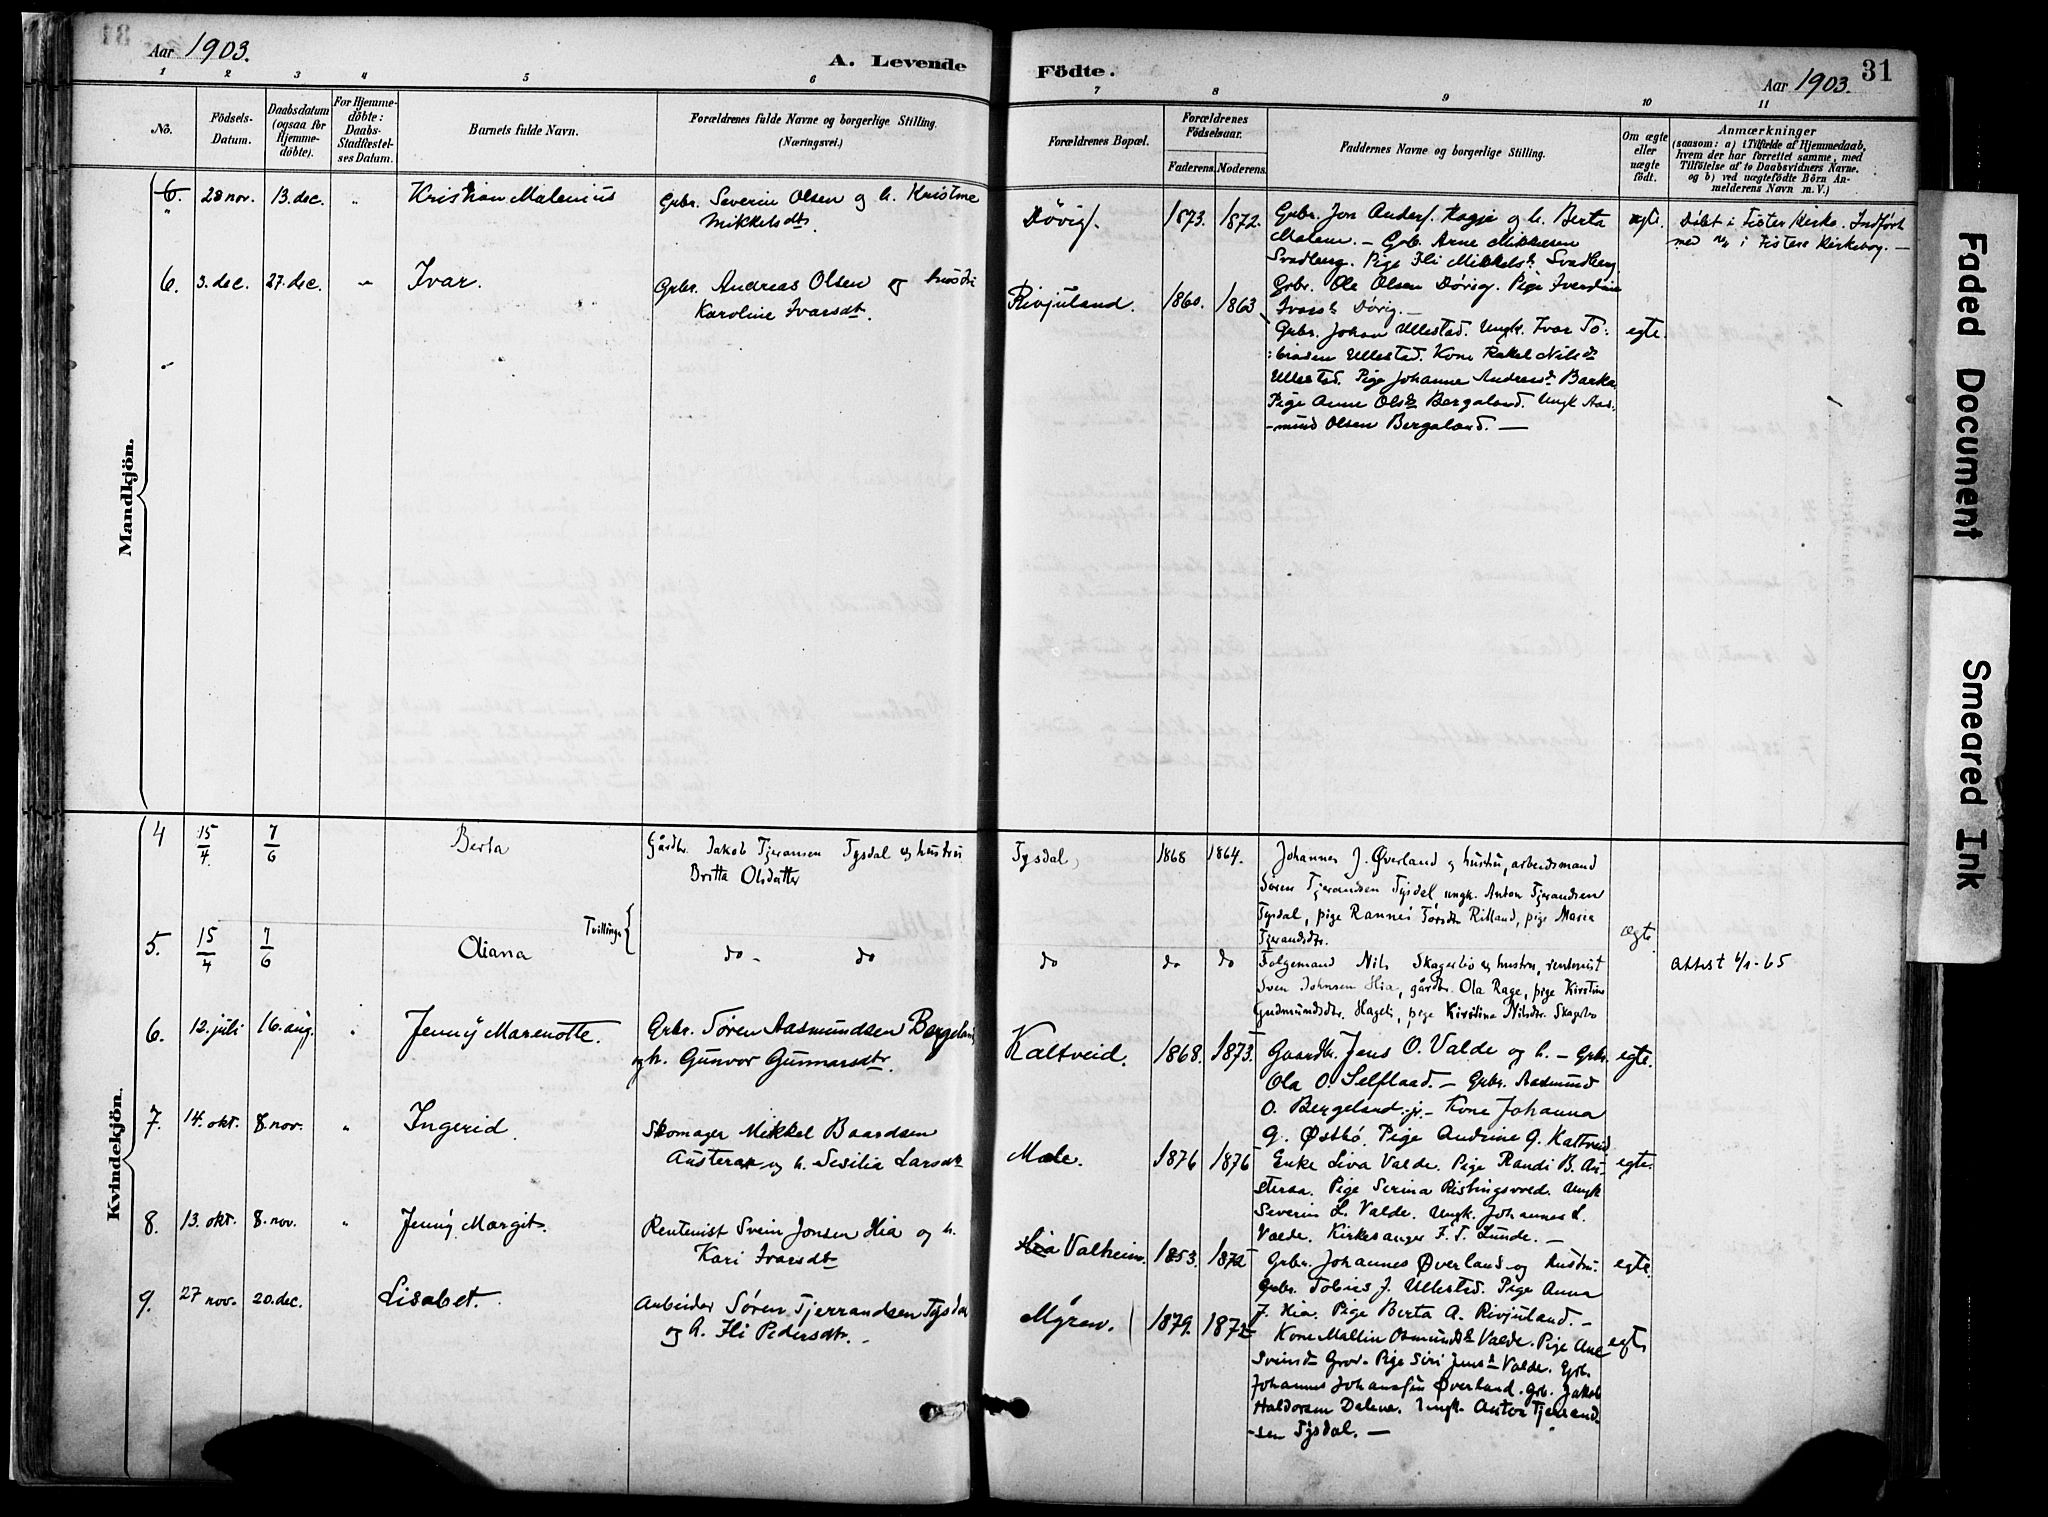 Aar 1903.
A. Levende
Födte.
Aar 1903.
31
1 2 3 4 5 6 7 8 9 10 11
No.
Födsels-
Datum.
Daabsdatum
(ogsaa for
Hjemme-
döbte).
For Hjemme-
döbte:
Daabs-
Stadfæstel-
ses Datum.
Barnets fulde Navn.
Forældrenes fulde Navne og borgerlige Stilling.
(Næringsvei.)
Forældrenes Bopæl.
Forældrenes
Födselsaar.
Faderens. Moderens.
Faddernes Navne og borgerlige Stilling.
Om ægte
eller
uægte
födt.
Anmærkninger
(saasom: a) i Tilfælde af Hjemmedaab,
hvem der har forrettet samme, med
Tilföielse af to Daabsvidners Navne.
og b) ved uægtefödte Börn An-
melderens Navn m. V.)
Mandkjön.
6. 28 nov. 13. dec. " Kristian Malenius
Grbr. Severin Olsen og h. Kristine
Mikkelsdtr.
Døvig 1873. 1872.
Grbr. Jon Anders. Hagje og h. Berta
Malene. — Grb. Arne Mikkelsen
Svadberg. Pige Ili Mikkelsdt. Svadberg
Grbr. Ole Olsen Døvig. Pige Iverdine
Ivarsdt. Døvig. —
egte. Døbt i Fister Kirke. Indført
med i Fisters Kirkebog. —
6. 3. dec. 27. dec. " Ivar.
Grbr. Andreas Olsen og hustru
Karoline Ivarsdtr.
Rivjuland. 1860. 1863
Grbr. Johan Ullestad. Ungk. Ivar To-
biasen Ullestad. Kone Rakel Nilsdt
Ullestad. Pige Johanne Andreasdt. Barka.
Pige Anne Olsdt Bergaland. Ungk Aas-
-mund Olsen Bergaland. —
egte.
Kvindekjön.
4 15/4 7/6 Berta
Gårdbr. Jakob Tjeransen Tysdal og hustru
Britta Olsdatter
Tysdal, 1868 1864.
Johannes J. Øverland og hustru, arbeidsmand
Søren Tjerandsen Tysdal, ungk. Anton Tjerandsen
Tysdal, pige Rannei Torsdtr Ritland, pige Maria
Tjerandsdtr.
Tvillinge
Ægte.
5. 15/4 7/6 Oliana do - do
do do do
Folgemand Nils Skagerbø og hustru, rentenist
Sven Johnsen Hia, gårdbr. Ola Rage, pige Kirstine
Gudmundsdtr. Hageli, pige Kirstine Nilsdtr. Skagerbo
Attest 4/1-65
6. 12. juli 16. aug. " Jenny Marenotte.
Grbr. Søren Aasmundsen Bergeland
og h. Gunvor Gunnarsdtr.
Kaltveid. 1868. 1873.
Gaardbr. Jens O. Valde og h. — Grbr.
Ola O. Selfland. — Grbr. Aasmund
O. Bergeland jr. — Kone Johanna
G. Østbø. Pige Andrine G. Kaltveid
egte.
7. 14. okt. 8. nov. " Ingerid.
Skomager Mikkel Baardsen
Austeraa og h. Sesilia Larsdtr
Mæle. 1876 1876
Enke Liva Valde. Pige Randi B. Au-
steraa. Pige Serina Risbingsvold. Ungk
Severin L. Valde. Ungk. Johannes L.
Valde. Kirkesanger F. T. Lunde. —
egte.
8. 13. okt. 8. nov. " Jenny Margit.
Rentenist Svein Jonsen Hia og h.
Kari Ivarsdtr
Hia Valheim. 1853. 1872
Grbr. Johannes Øverland og hustru.
Grbr. Tobias J. Ullestad. Pige Anna
J. Hia. Pige Berta A. Rivjuland. —
egte.
9. 27 nov. 20. dec. Lisabet.
Arbeider Søren Tjerrandsen Tysdal
og h. Ili Pedersdtr. —
Myren. 1879. 1872
Kone Mallin Osmundsdt Valde. Pige Ane
Sveinsdt Grov. Pige Siri Jensdt Valde. Grb.
Johannes Johansen Øverland. Grb. Jakob
Haldorsen Dalene. Ungk. Anton Tjerand-
-sen Tysdal. —
egte
Faded Document
Smeared Ink